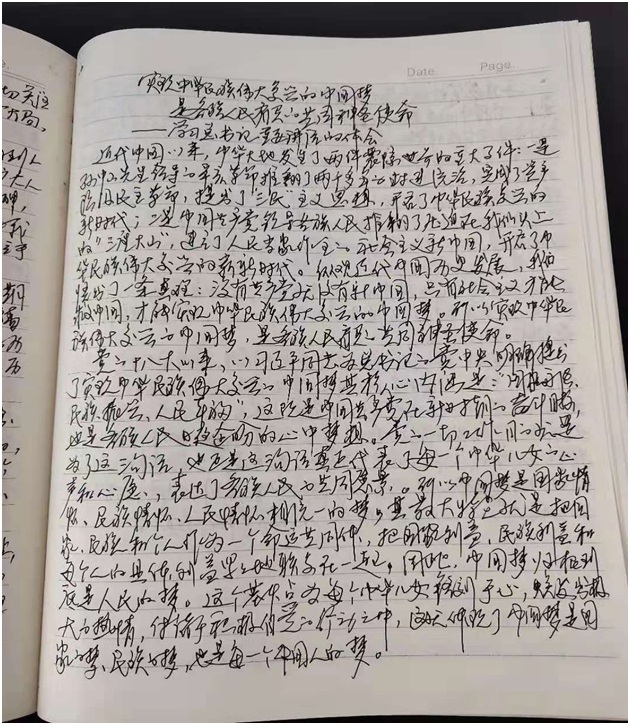 切关注
Date.
Page.
“实现中华民族伟大复兴的中国梦
是各族人民肩负的共同神圣使命
——学习总书记重要讲话的体会
近代中国以来，中华大地发生了两件震撼世界的重大事件：一是
孙中山先生领导的辛亥革命推翻了两千多年的封建统治，完成了资产
阶级民主革命，提出了“三民”主义思想，开启了中华民族复兴的
新时代；二是中国共产党领导各族人民推翻了压迫在我们头上
的“三座大山”，建立了人民当家作主的社会主义新中国，开启了中
华民族伟大复兴的新时代。纵观近代中国历史发展，我们
悟出了一条真理：没有共产党就没有新中国，只有社会主义才能
救中国，才能实现中华民族伟大复兴的中国梦。所以实现中华民
族伟大复兴的中国梦，是各族人民肩负的共同神圣使命。
党的十八大以来，以习近平同志为总书记的党中央明确提出
了实现中华民族伟大复兴的中国梦其核心内涵是：“国家富强、
民族振兴、人民幸福”，这既是中国共产党在新时期的奋斗目标，
也是各族人民日夜企盼的心中梦想。党的一切工作目的就是
为了这句话，也正是这句话真正代表了每一个中华儿女的心
声和心愿，表达了各族人民的共同愿景。所以中国梦是国家情
怀、民族情怀、人民情怀相统一的梦，其最大特点就是把国
家、民族和个人作为一个命运共同体，把国家利益、民族利益和
每个人的具体利益紧紧地联系在一起。因此，中国梦归根到
底是人民的梦。这个梦由每个中华儿女
大的热情，
积极
行动之中，这就体现了中国梦是国
家的梦、民族的梦，也是每一个中国人的梦。